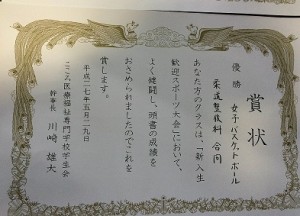 賞状
優勝 女子バスケットボール
柔道整復科 合同
あなた方のクラスは、「新入生
歓迎スポーツ大会」において、
よく健闘し、頭書の成績を
おさめられましたのでこれを
賞します。
平成二七年五月二九日
こころ医療福祉専門学校学生会
幹事長 川崎 雄大